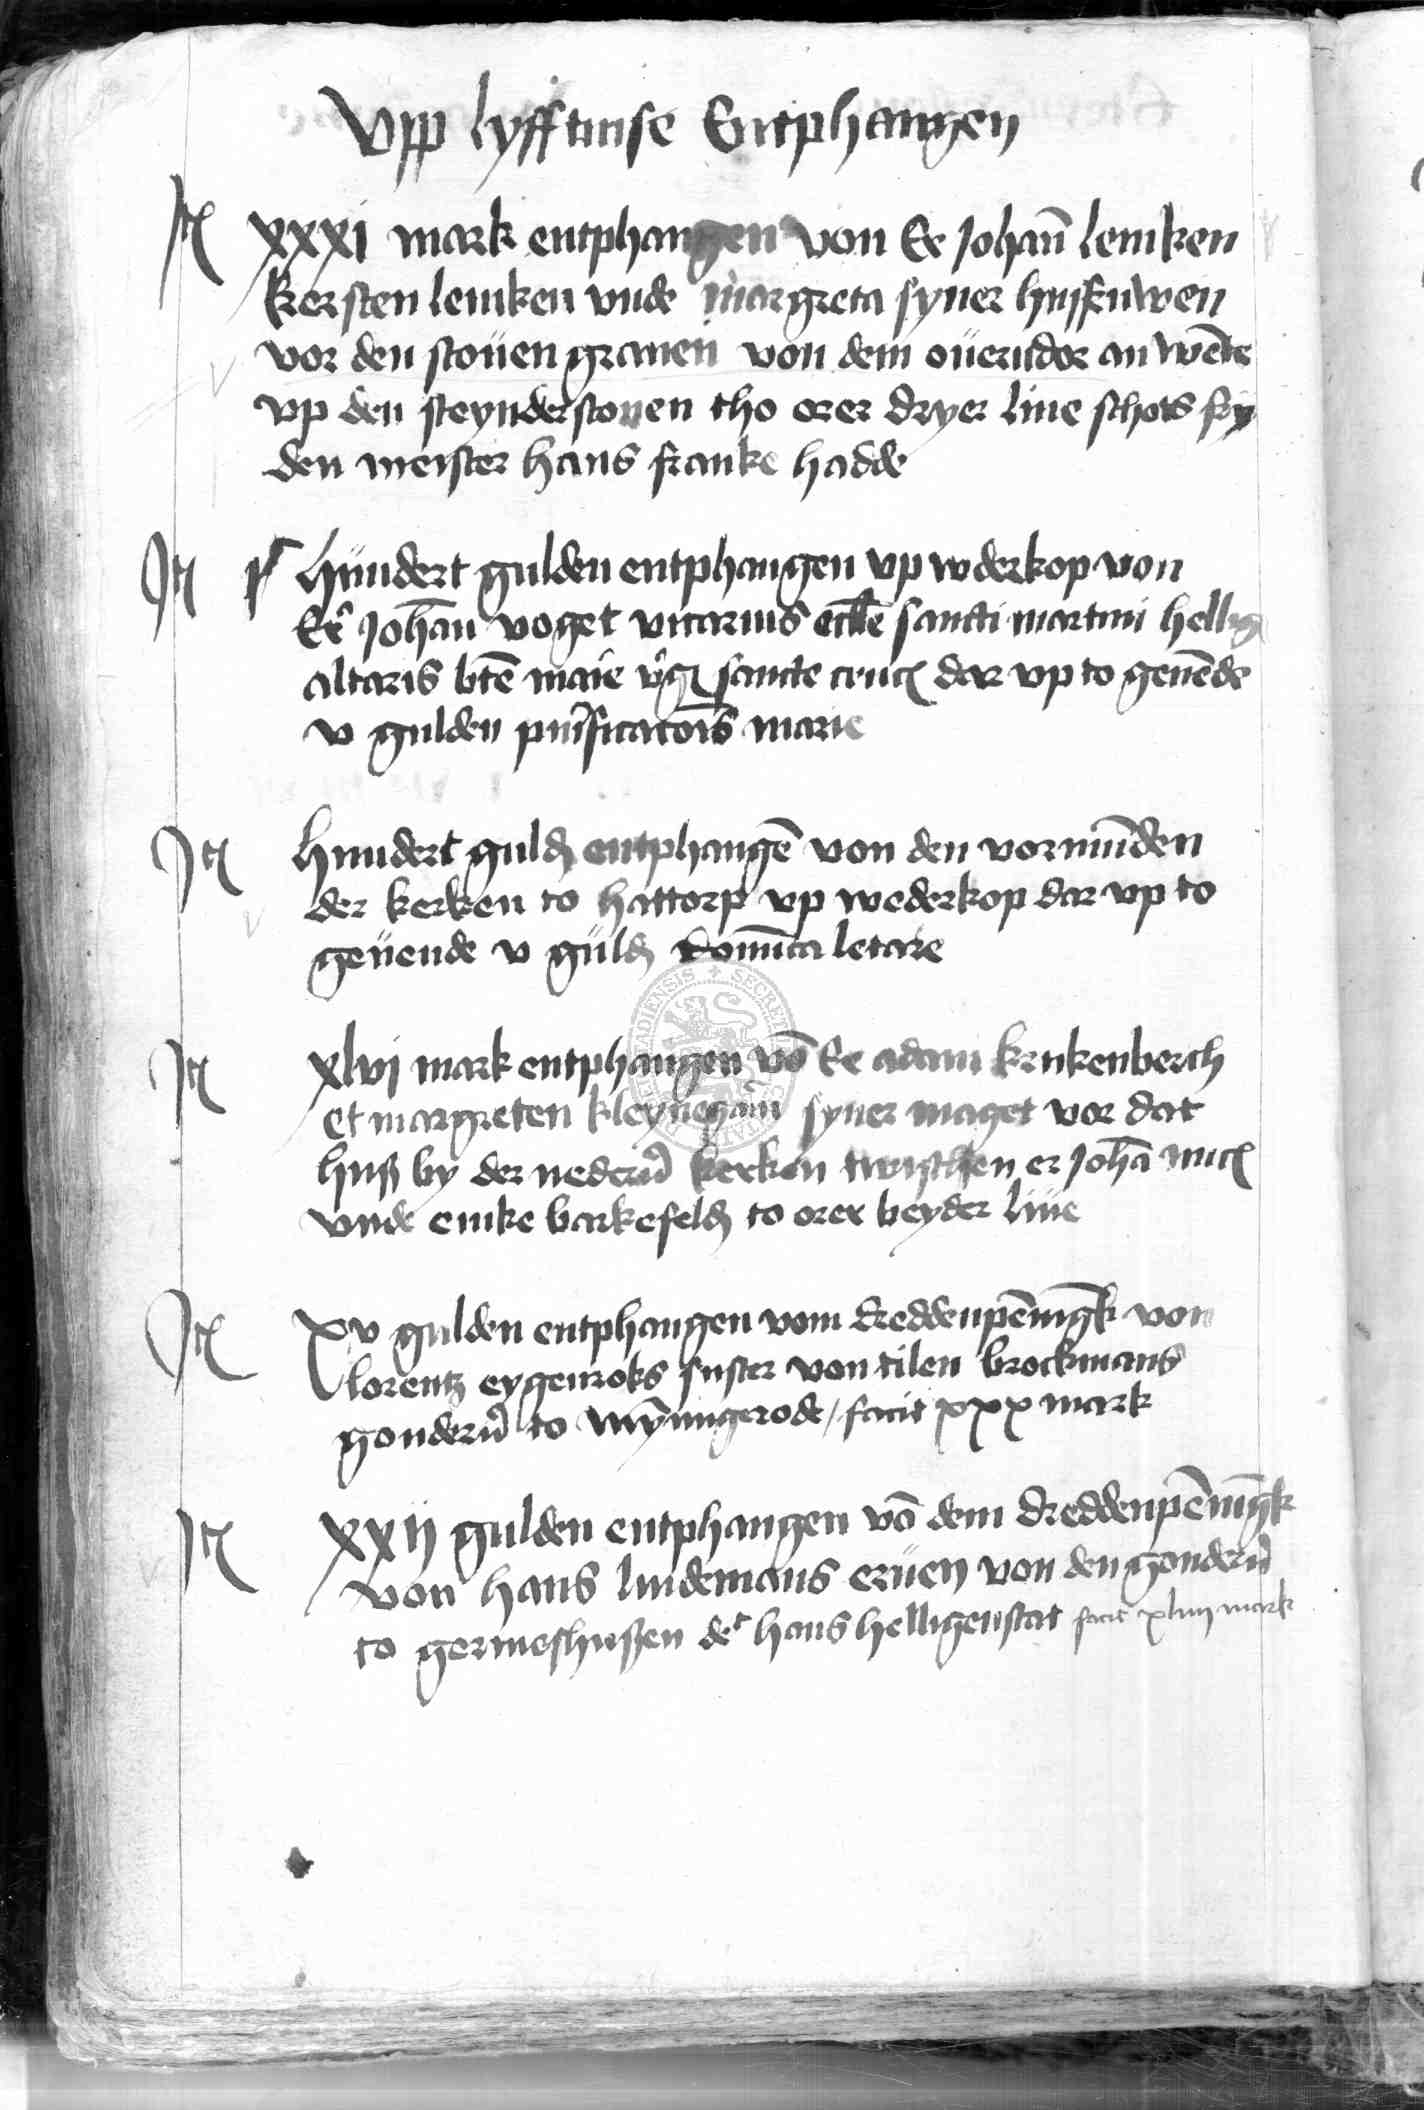 Vpp lyfftinse Entphangen
Itē xxxi mark entphangen von Er Johañ lemken
kersten lemken vnde margreta syner husfruwen
vor den stouen grauen von dem ouerndor an wēte
vp den steynderstouen tho orer dryer liue schots fry
den meister hans franke hadde
Itē hundert gulden entphangen vp wderkop von
Er Johan voget vicarius eccle sancti martini hellig
altaris btē marie vgis sancte crucis dar vp to geuēde
v gulden purificatōis marie
Itē hundert guld entphangē von den vormunden
der kerken to hattorp vp wederkop dar vp to
geuende v guld domica letare
Itē xlvi mark entphangen vō Er adam krukenberch
et margreten kleynegam syner maget vor dat
huß by der nedern kerken twischen er Johā
vnde emke barkefeld to orer beyder liue
Itē xv gulden entphangen vom dreddenpēningk von
lorentz eygenroks suster von tilen brockmans
gondern to wyningerode / facit xxx mark
Itē xxij gulden entphangen vō dem dreddenpēningk
von hans lindemans eruen von den gondern
to germeshußen det hans helligenstat facit xliiij mark